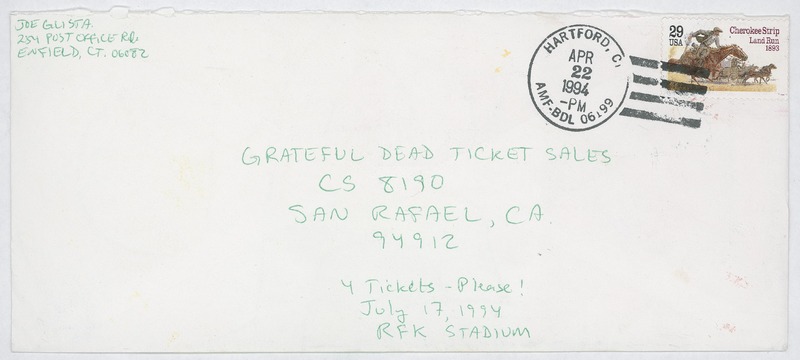 JOE GLISTA
254 POST OFFICE Rd.
ENFIELD, CT. 06082
HARTFORD, CT
APR
22
1994
-PM
AMF-BDL 06199
29
USA
Cherokee Strip
Land Run
1893
GRATEFUL DEAD TICKET SALES
CS 8190
SAN RAFAEL, CA
94912
4 Tickets - Please!
July 17, 1994
RFK STADIUM